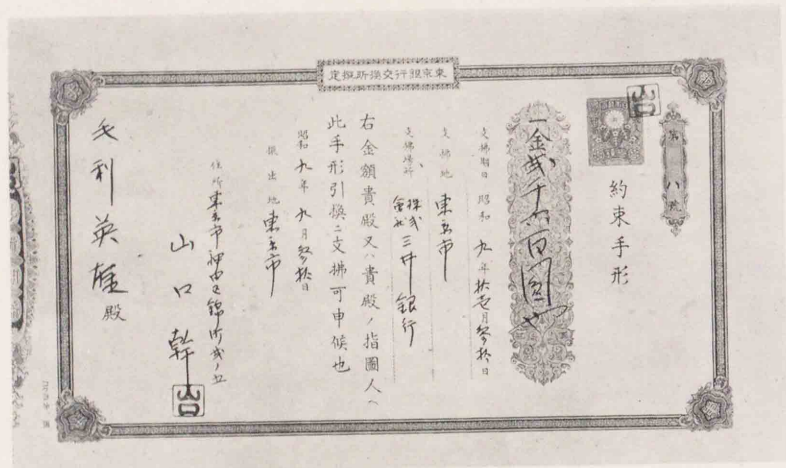 東京銀行交換所規定
第八號
約束手形
一金貳千六百圓也
支拂期日 昭和九年拾壱月参拾日
支拂地 東京市
支拂場所 株式会社三井銀行
右金額貴殿又ハ貴殿ノ指圖人ヘ
此手形引換ニ支拂可申候也
昭和九年九月参拾日
振出地 東京市
住所 東京市神田区錦町貳ノ五
山口幹
毛利英雄殿